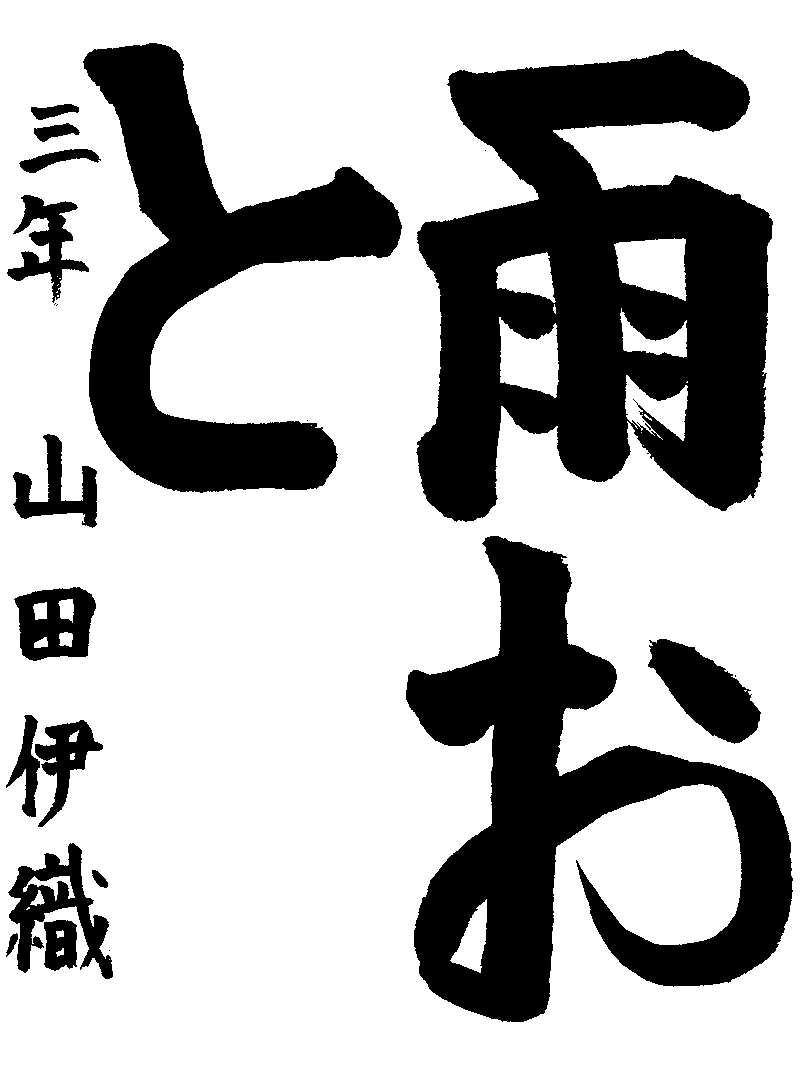 雨お
と
三年 山田伊織